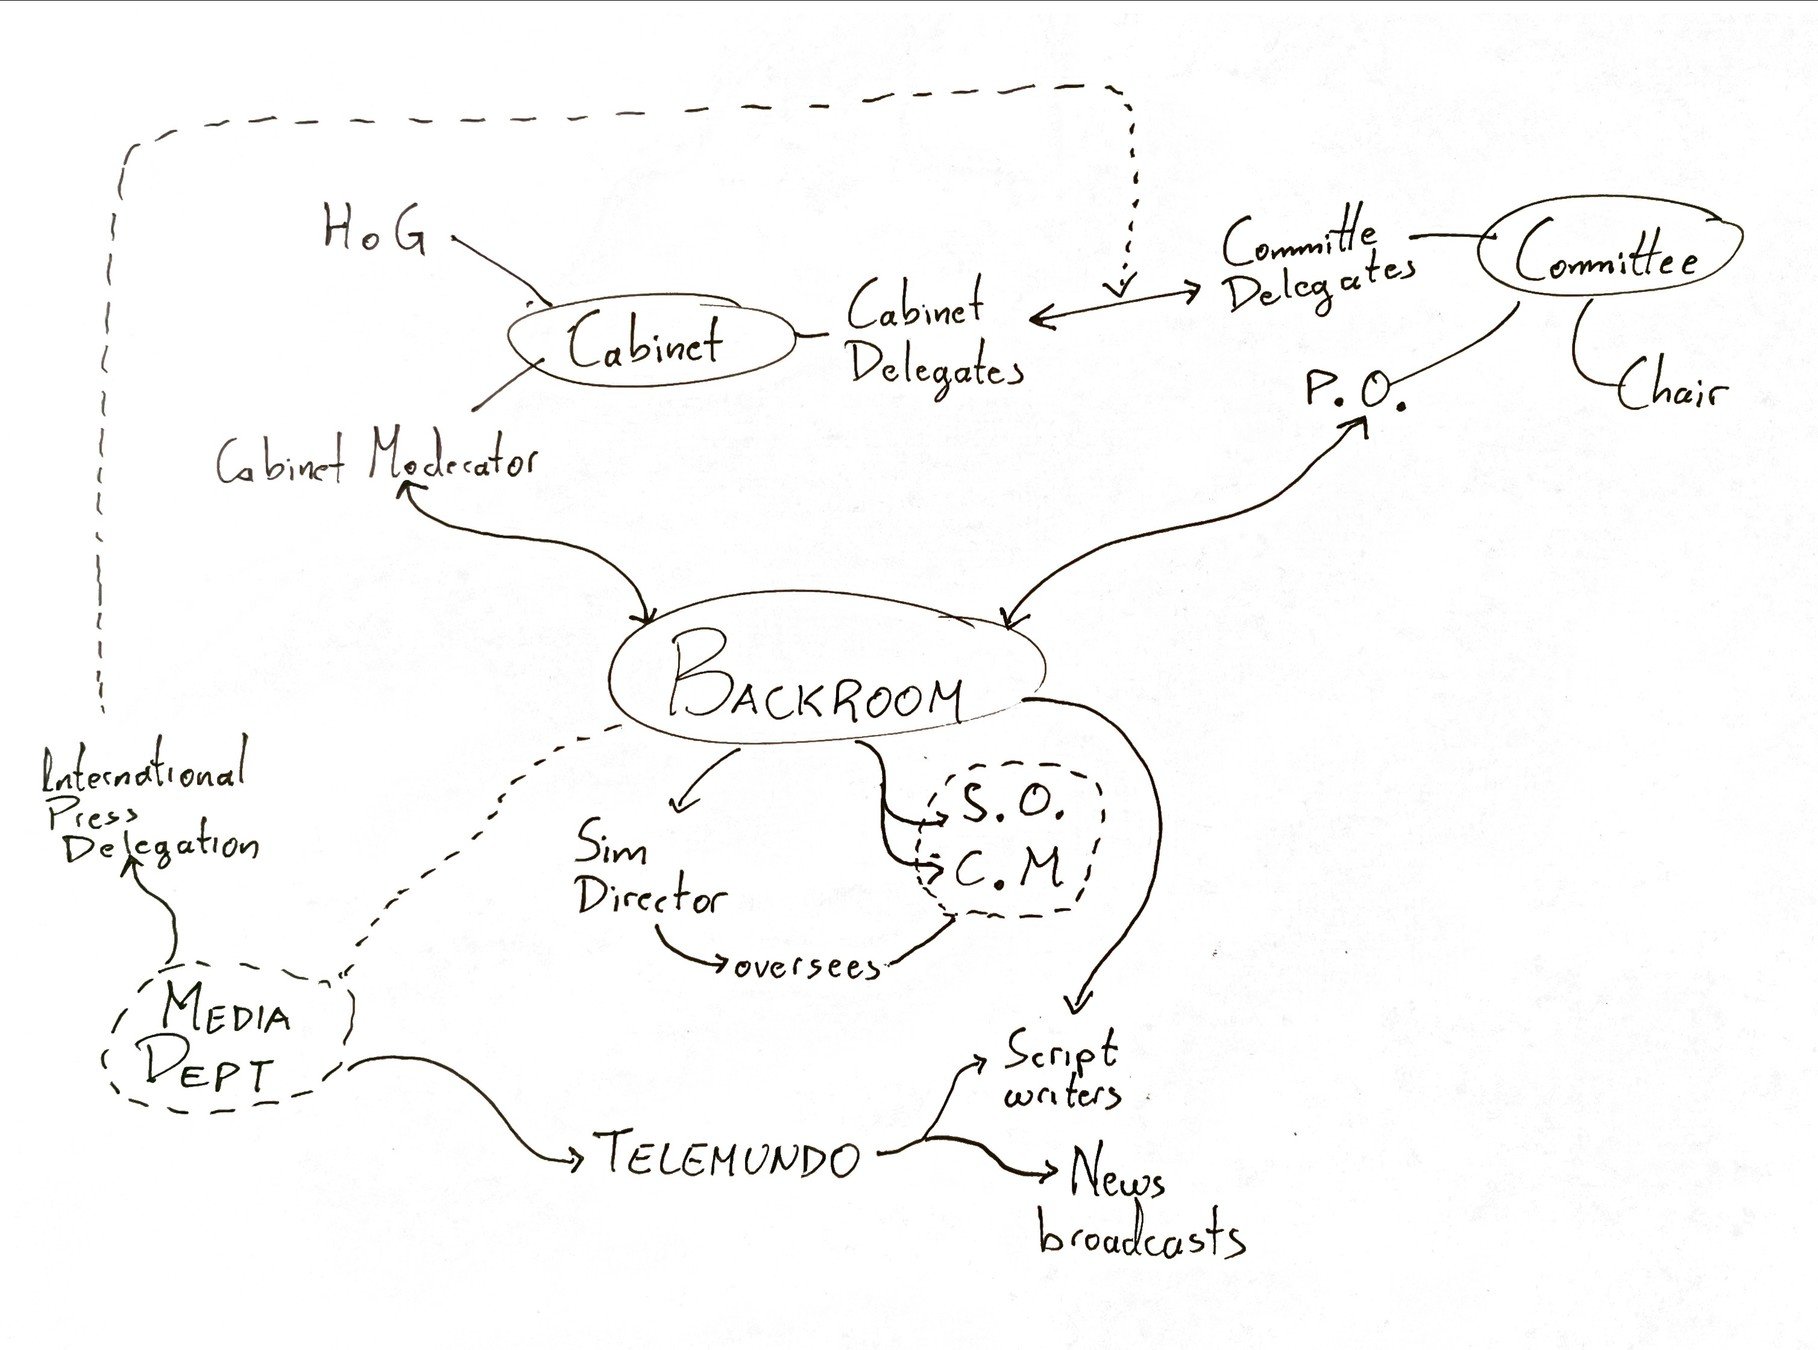 HoG
Cabinet
Cabinet
Delegates
Cabinet Moderator
Committe
Delegates
Committee
P.O.
Chair
BACKROOM
International
Press
Delegation
Sim
Director
S.O.
C.M
oversees
MEDIA
DEPT
TELEMUNDO
Script
writers
News
broadcasts